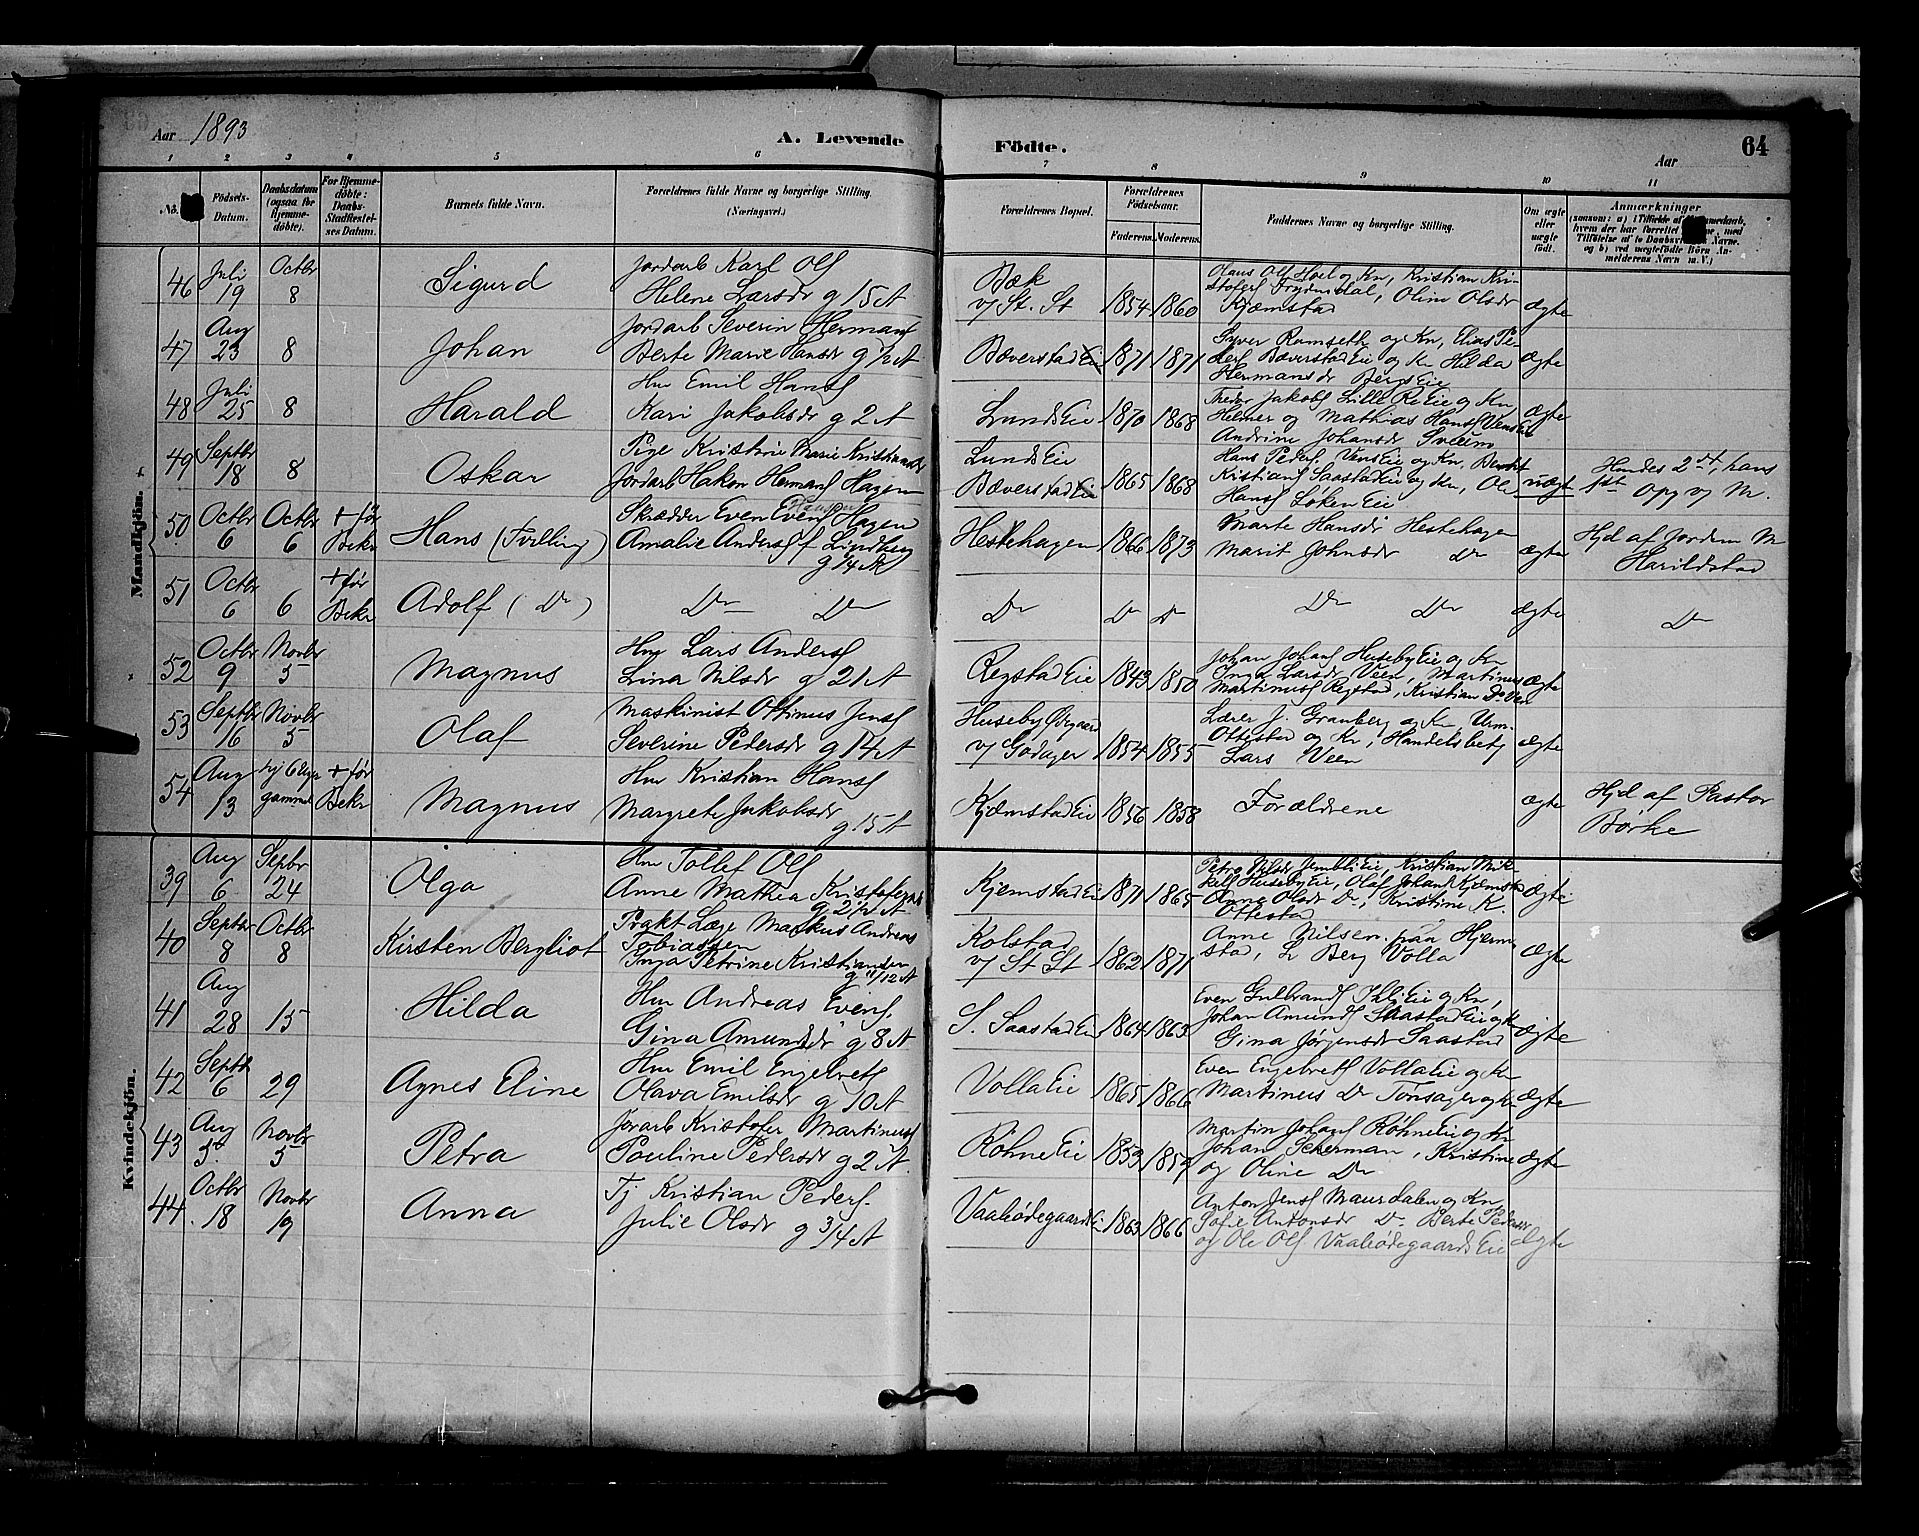 Aar 1893
A. Levende Födte.
Aar
64
1 2 3 4 5 6 7 8 9 10 11
No. Födsels-Datum. Daabsdatum (ogsaa for Hjemmedöbte). For Hjemmedöbte: Daabs-Stadfæstelses Datum. Barnets fulde Navn. Forældrenes fulde Navne og borgerlige Stilling. (Næringsvei.) Forældrenes Bopæl. Forældrenes Födselsaar. Faderens. Moderens. Faddernes Navne og borgerlige Stilling. Om ægte eller uægte födt. Anmærkninger
Mandkjön.
46 Juli 19 Octbr 8 Sigurd
Jordarb Karl Ols
Helene Larsdr g 15 A
Bæk
v/ St. St 1854 1860
Hans Ols Hoel og Kn, Kristian Kri-
stofers Frydensdal, Oline Olsdr
Kjæmstad
ægte
47 Aug 23 8 Johan
Jordarb Severin Hermans
Berte Marie Hansdr g 1/2 A
BæverstadEie 1871 1871
Syver Ramseth og Kn, Elias Pe-
ders BæverstadEie og K Hilda
Hermansdr BergsEie
ægte
48 Juli 25 8 Harald
Hm Emil Hans
Kari Jakobsdr g 2 A
LundsEie 1870 1868
Jakobs Lille ReEie og Kn
Helmer og Mathias Hans VensEie
Andrine Johansdr Sveum
ægte
49 Septbr 18 8 Oskar
Pige Kristine Marie Kristiansdr
Jordarb Hakon Hermans Hagen
LundsEie
BæverstadEie 1865 1868
Hans Peders VensEie og Kn,
Kristians SaastadEie og Kn, Ole
Hans LökenEie
uægte
Hendes 2det, hans
1ste Opg v/ M.
50 Octbr 6 Octbr 6 + før Bekr Hans (Tvilling)
Skrædder Even Evens Hagen
Amalie Anders Lindberg
g 14 A
Hestehagen 1866 1873
Marte Hansdr Hestehagen
Marit Johnsdr Do
ægte
Hjd af Jordem M
Harildstad
51 Octbr 6 6 + før Bekr Adolf (Do)
Do Do
Do Do Do
Do Do
ægte
Do
52 Octbr 9 Novbr 5 Magnus
Hm Lars Anders
Lina Nilsdr g 21 A
RegstadEie 1843 1850
Johan Johans HusebyEie og Kn
Inga Larsdr Veen, Martinus
Martinus Regstad, Kristian Do Ven
ægte
53 Septbr 16 Novbr 5 Olaf
Maskinist Ottinus Jens
Severine Pedersdr g 14 A
Huseby Øvgaard
v/ Godager 1854 1855
Lærer J. Granberg og Kn, Urm.
Ottestad og Kn, Handelsbetj
Lars Veen
ægte
54 Aug 13 hj 6 Uger gammel + før Bekr Magnus
Hm Kristian Hans
Margrete Jakobsdr
g 15 A
KjæmstadEie 1856 1858
Forældrene
ægte
Hjd af Pastor
Börke
Kvindekjön.
39 Aug 6 Septbr 24 Olga
Hm Tollef Ols
Anne Mathea Kristofersdr
g 2 1/2 A
KjemstadEie 1871 1865
Petra Nilsdr JembliEie, Kristian Mik-
kels HusebyEie, Olaf Johans Kjæmstad
Anne Olsdr Do, Kristine K.
Ottestad
ægte
40 Septbr 8 Octbr 8 Kirsten Bergliot
Prakt Læge Markus Andreas
Tobiassen
Inga Petrine Kristiansen
g 11/12 A
Kolstad
v/ St St 1862 1871
Anne Nilsen paa Hjem-
stad, L Berg Volla
ægte
41 Aug 28 15 Hilda
Hm Andreas Evens
Gina Amundsdr g 8 A
S. SaastadEie 1864 1863
Even Gulbrands IhliEie og Kn,
Johan Amunds SaastadEie og K
Gina Jørgensdr Saastad
ægte
42 Septbr 6 29 Agnes Eline
Hm Emil Engebrets
Olava Emilsdr g 10 A
VollaEie 1865 1866
Even Engebrets VollaEie og Kn
Martinus Do Tönsager og Kn
ægte
43 Aug 5 Novbr 5 Petra
Jorarb Kristofer Martinus
Pauline Pedersdr g 2 A
RöhneEie 1853 1859
Martin Johans RöhneEie og Kn
Johan Sekerman, Kristine
og Oline Do
ægte
44 Octbr 18 Novbr 19 Anna
Tj Kristian Peders
Julie Olsdr g 3/4 A
VaalødegaardsEie 1863 1866
Anton Jens Maurdalen og Kn
Sofie Antonsdr Do Berte Pedersdr
og Ole Ols VaalødegaardsEie
ægte